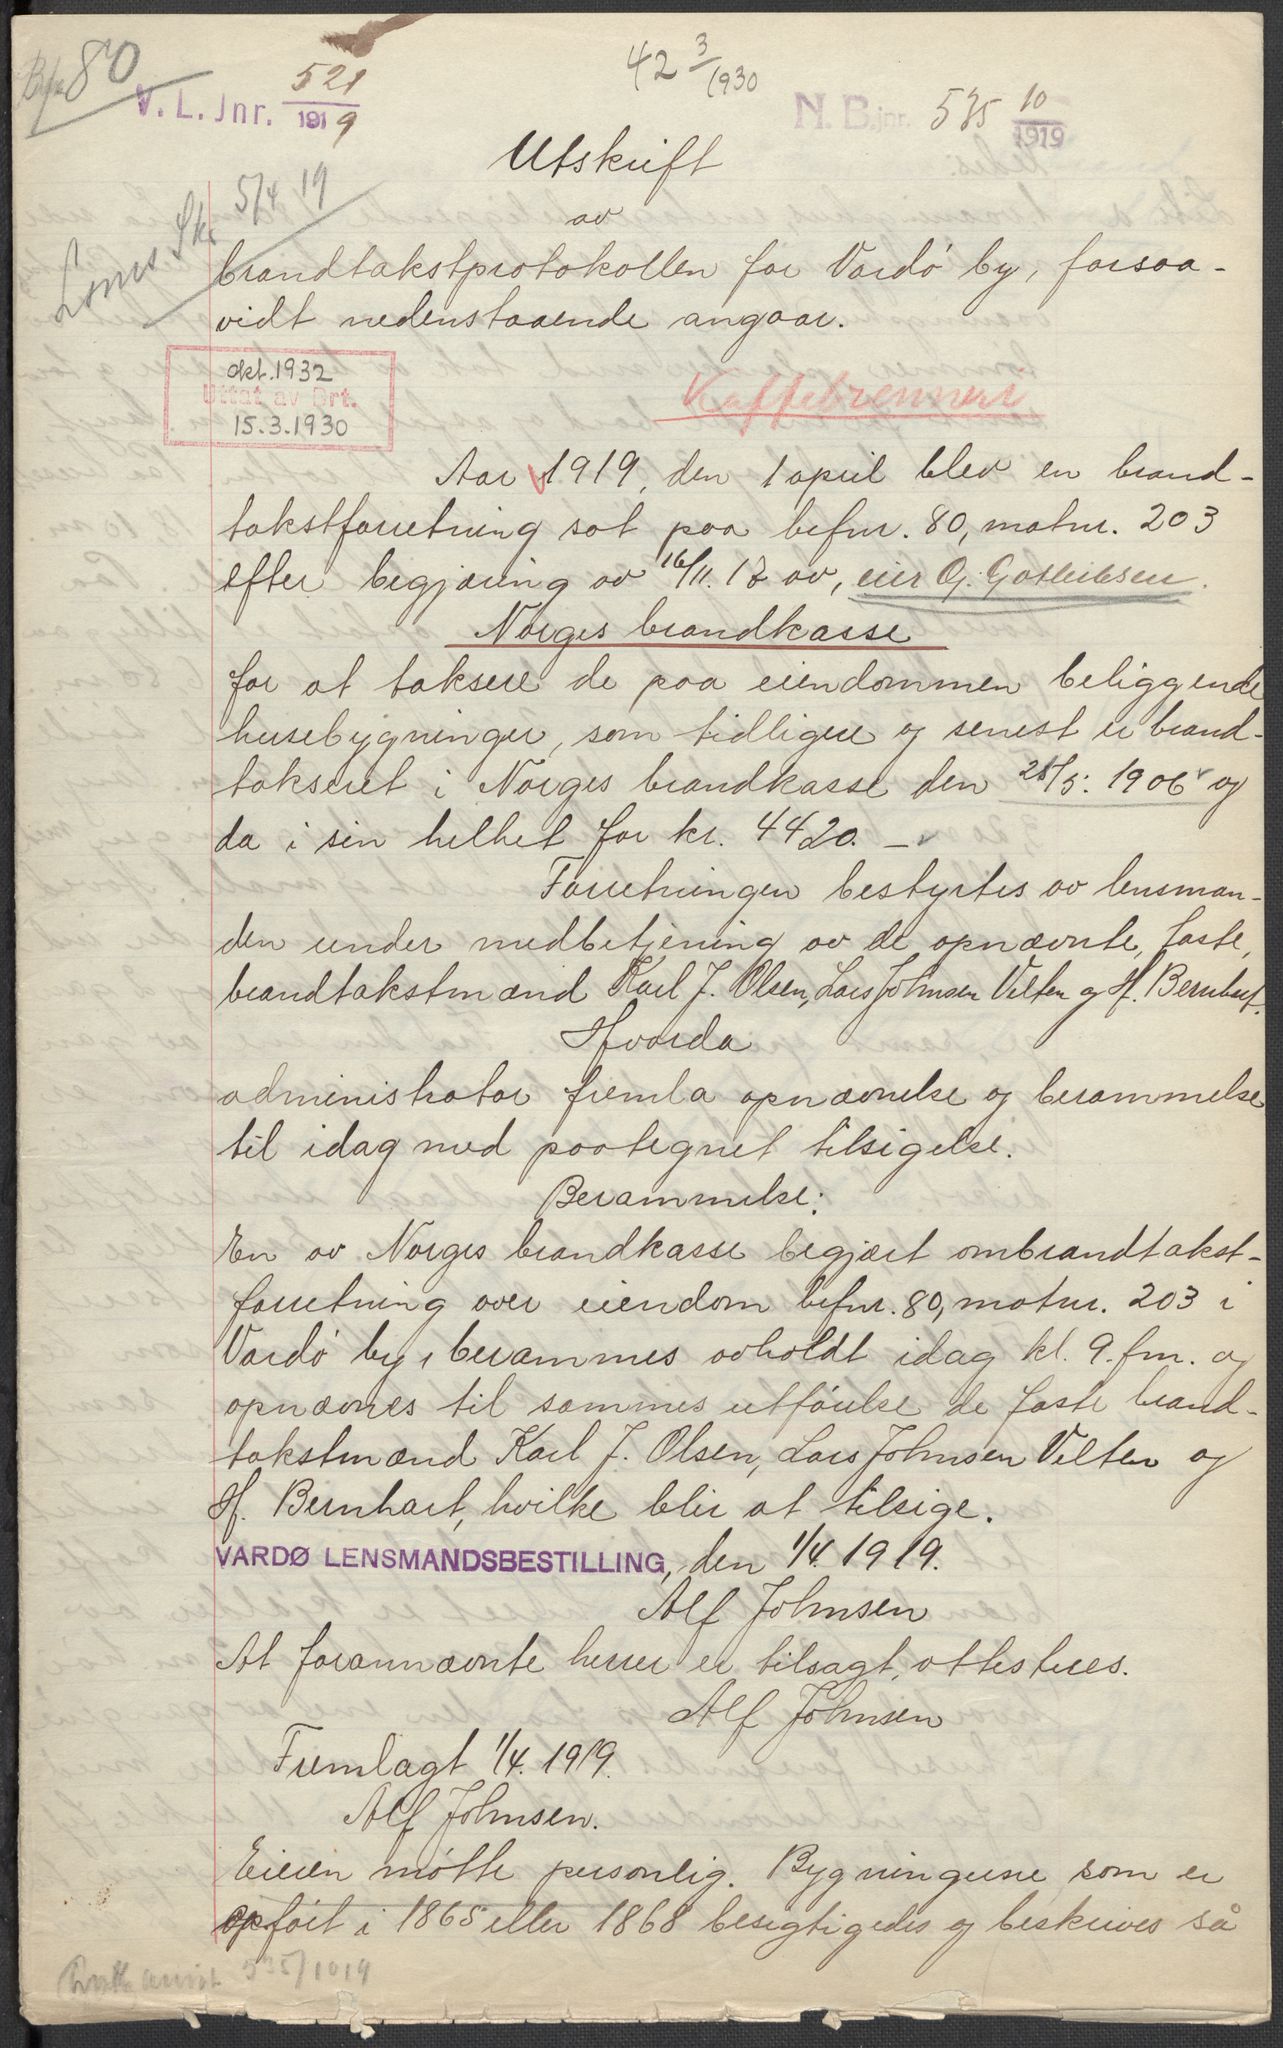 80
42 3/1930
V. L. Jnr. 521/1919
N. B. jnr. 535 10/1919
Utskrift
av
5/4 19
brandtakstprotokollen for Vardö by, forsaa-
vidt nedenstaaende angaar.
okt. 1932
Uttat av Drt.
15.3.1930
Kaffebrenneri
Aar 1919, den 1 april blev en brand-
takstforretning sat paa befnr. 80, matnr. 203
efter begjæring av 16/11. 18 av, eier O. Gottliebsen.
Norges brandkasse
for at taksere de paa eiendommen beliggende
husebygninger, som tidligere og senest er brand-
takseret i Norges brandkasse den 28/5. 1906 og
da i sin helhet for kr. 4420. –
Forretningen bestyrtes av lensman-
den under medbetjening av de opnævnte, faste,
brandtakstmænd Karl J. Olsen, Lars Johnsen Velten og H. Bernhart.
Hvorda
administrator fremla opnævnelse og berammelse
til idag med paategnet tilsigelse.
Berammelse:
En av Norges brandkasse begjært ombrandtakst-
forretning over eiendom befnr. 80, matnr. 203 i
Vardö by, berammes avholdt idag kl. 9. fm. og
opnævnes til sammes utförelse de faste brand-
takstmænd Karl J. Olsen, Lars Johnsen Velten og
H. Bernhart, hvilke blir at tilsige.
VARDØ LENSMANDSBESTILLING, den 1/4. 1919.
Alf Johnsen
At forannævnte herrer er tilsagt, attesteres.
Alf Johnsen
Fremlagt 1/4. 1919.
Alf Johnsen.
Eieren mötte personlig. Bygningerne som er
opfört i 1865 eller 1868 besigtigedes og beskrives så
535/1919